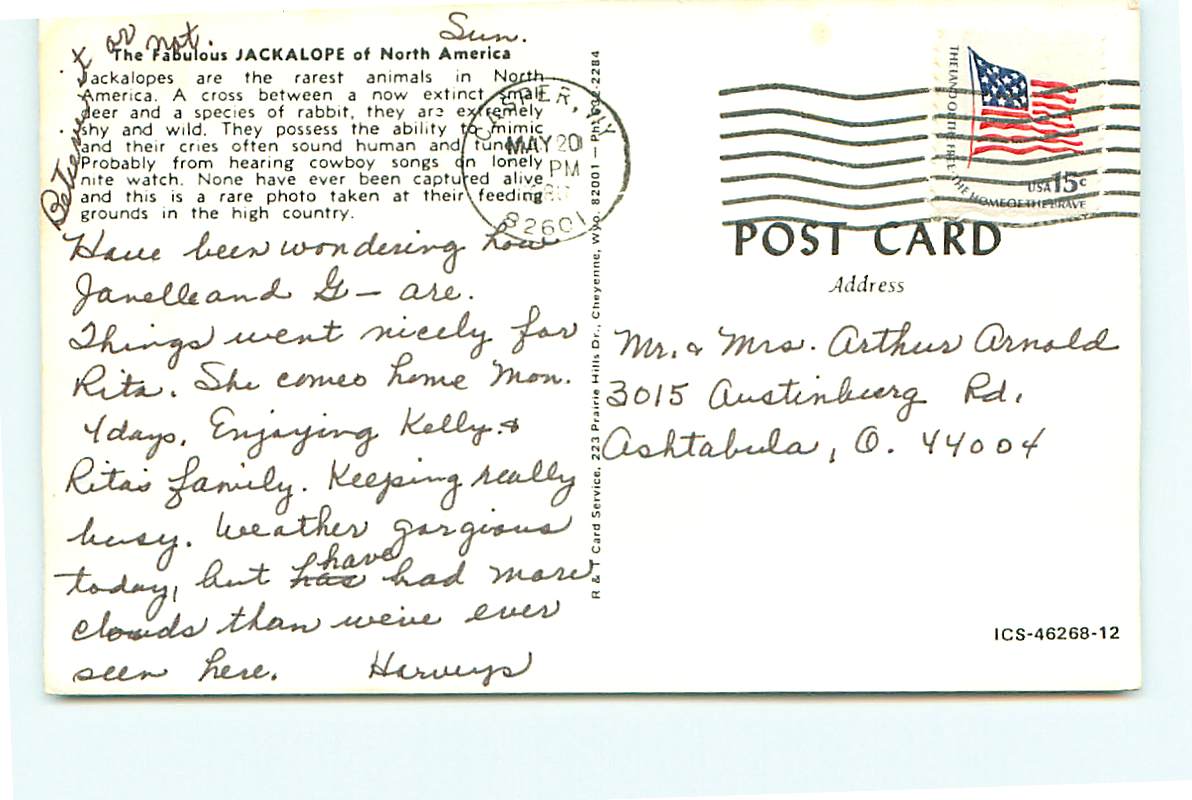 Sun.
Beleive it or not.
The Fabulous JACKALOPE of North America
Jackalopes are the rarest animals in North
America. A cross between a now extinct small
deer and a species of rabbit, they are extremely
shy and wild. They possess the ability to mimic
and their cries often sound human and
Probably from hearing cowboy songs on lonely
nite watch. None have ever been captured alive
and this is a rare photo taken at their feeding
grounds in the high country.
Have been wondering how
Janelle and G— are.
Things went nicely for
Rita. She comes home Mon.
4 days. Enjoying Kelly &
Rita's family. Keeping really
busy. Weather gorgious
today, but has have had more
clouds than we've ever
seen here. Harveys
CASPER, WY
MAY 20
PM
82601
R & T Card Service, 223 Prairie Hills Dr., Cheyenne, Wyo. 82001 — Ph. 632-2284
THE LAND OF THE FREE, THE HOME OF THE BRAVE
USA 15c
POST CARD
Address
Mr. & Mrs. Arthur Arnold
3015 Austinburg Rd.
Ashtabula, O. 44004
ICS-46268-12